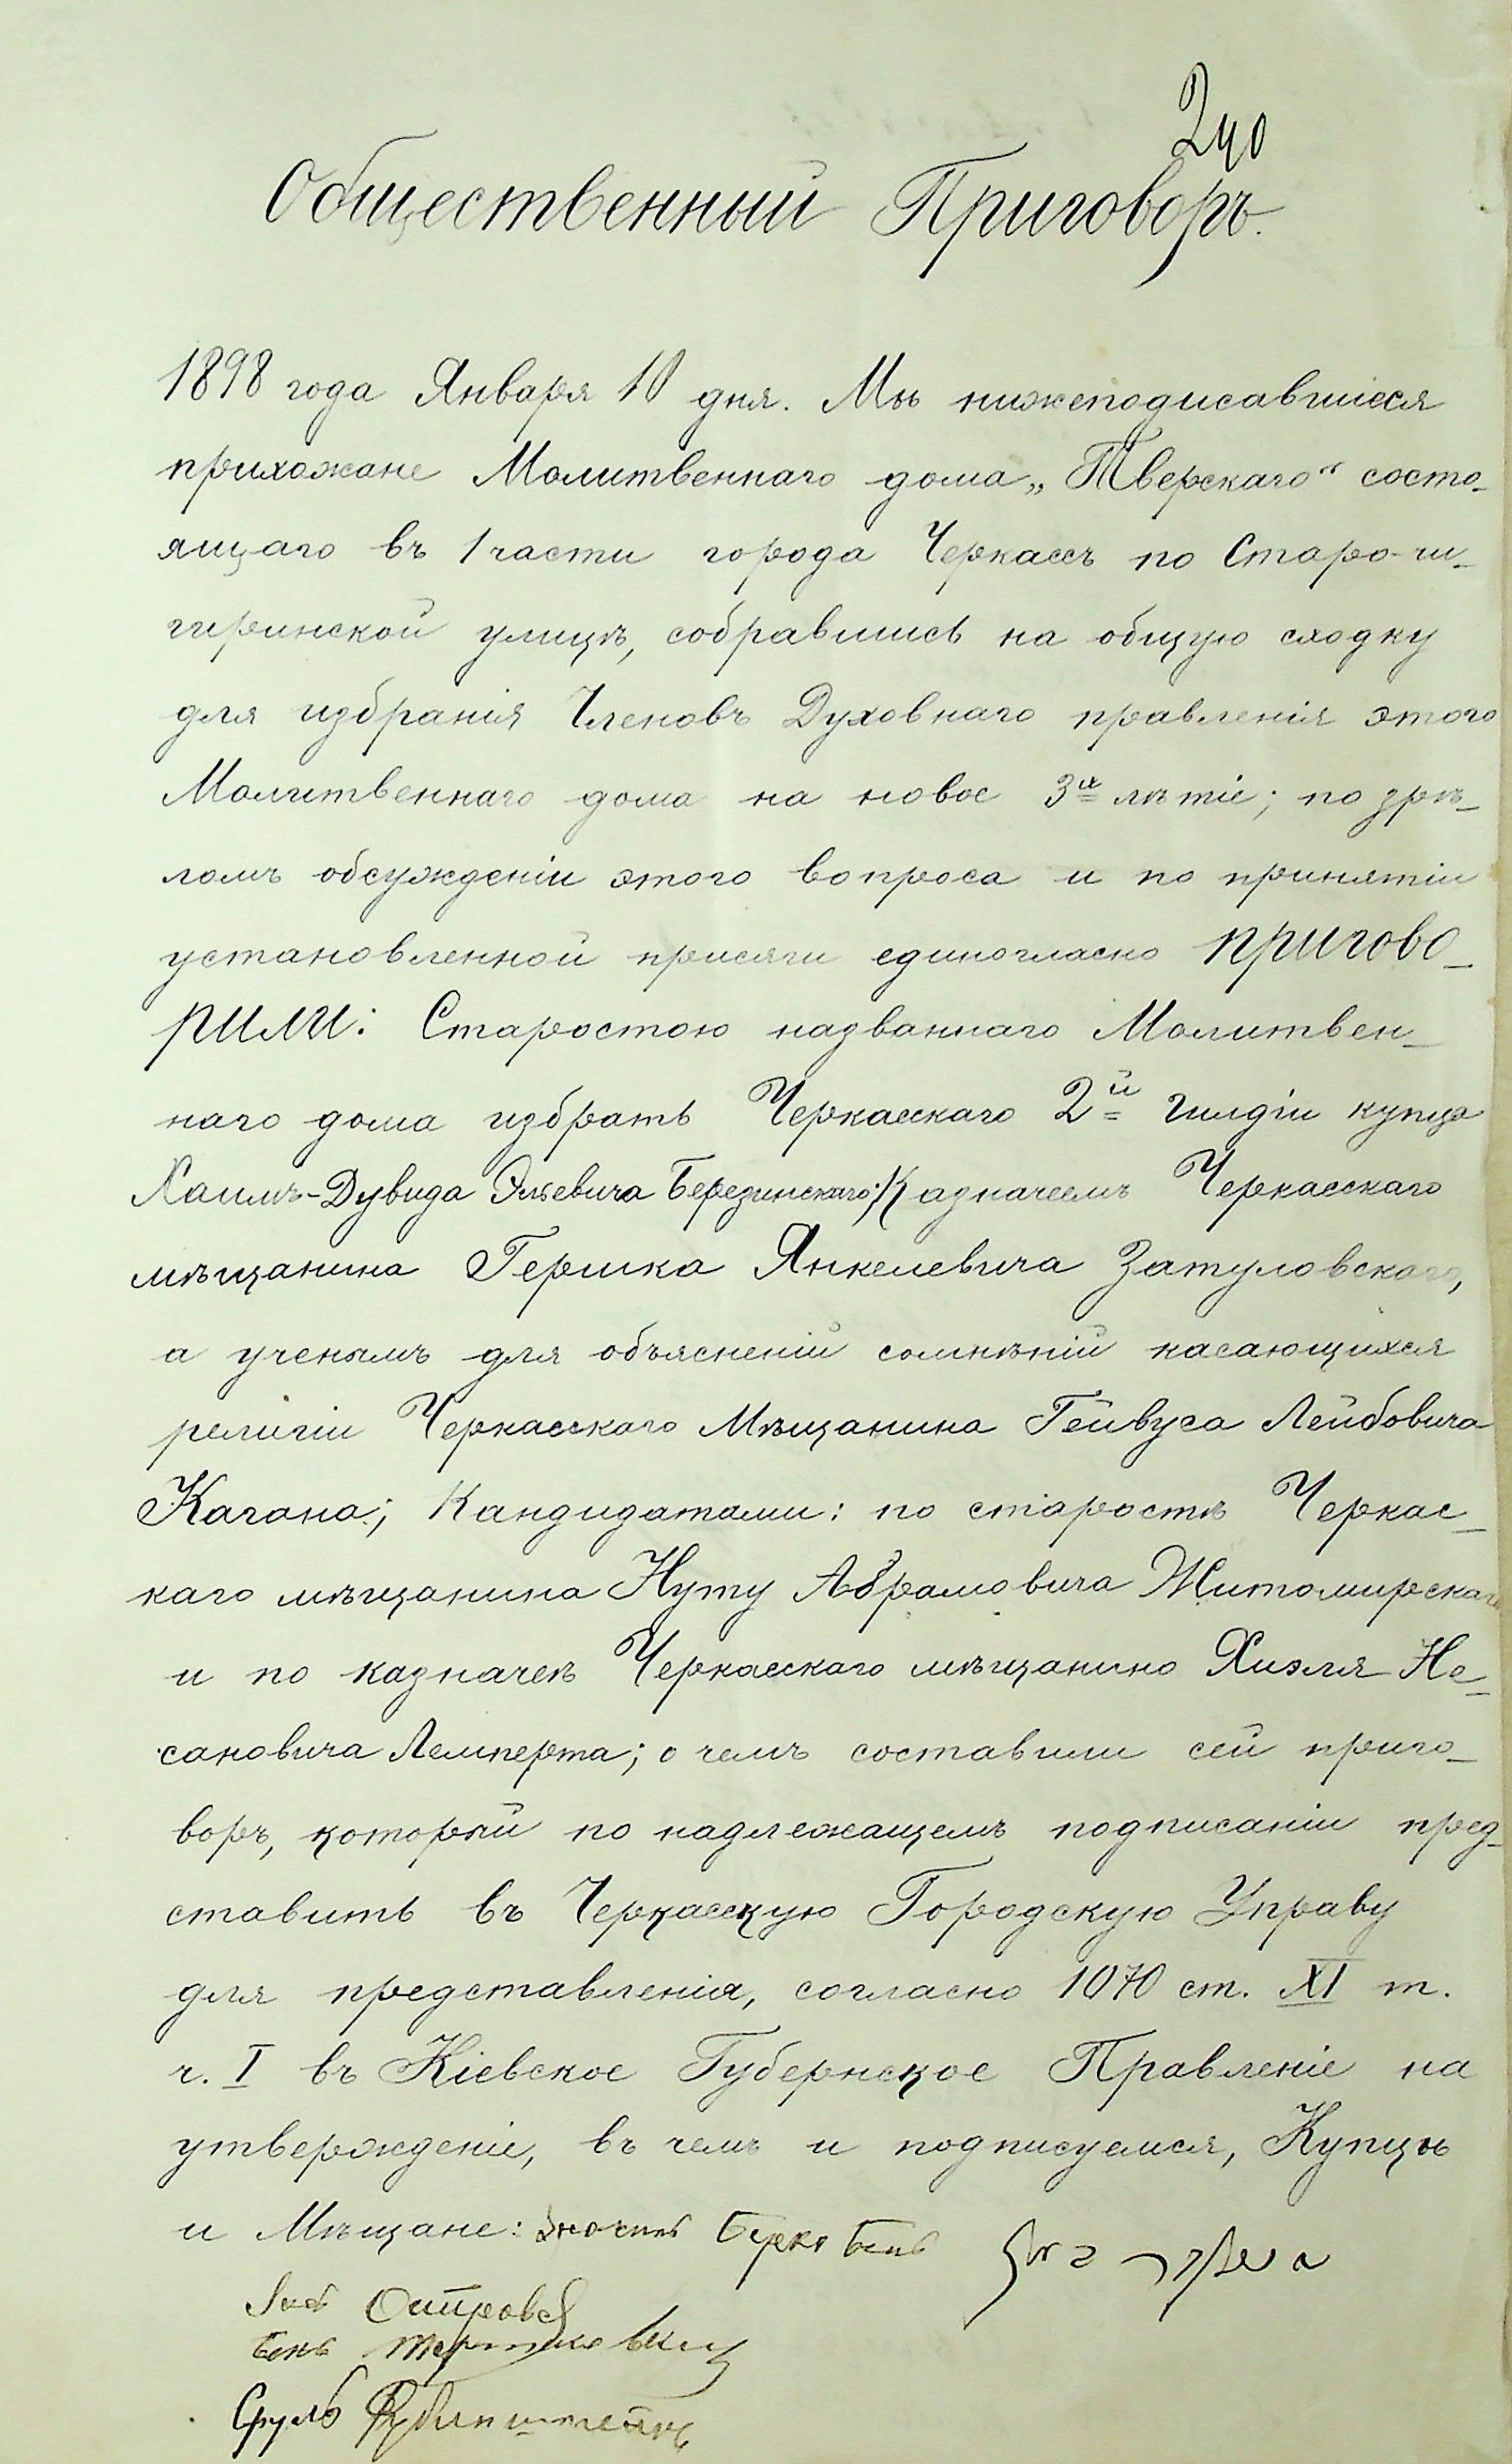 240
Общественный Приговоръ.
1898 года Января 10 дня. Мы нижеподисавшіеся
прихожане Молитвеннаго дома „Тверскаго“ состо-
ящаго въ 1 части города Черкассъ по Старо-чи-
гиринской улицѣ, собравшись на общую сходку
для избранія Членовъ Духовнаго правленія этого
Молитвеннаго дома на новое 3хъ лѣтіе; по зрѣ-
ломъ обсужденіи этого вопроса и по принятіи
установленной присяги единогласно пригово-
рили: Старостою названнаго Молитвен-
наго дома избрать Черкасскаго 2й гильдіи купца
Хаимъ-Дувида Эльевича Березинскаго; Казначеемъ Черкасскаго
мѣщанина Гершка Янкелевича Затуловскаго,
а ученымъ для объясненій сомнѣній касающихся
религіи Черкасскаго Мѣщанина Гейвуса Лейбовича
Кагана; Кандидатами: по старостѣ Черкас-
каго мѣщанина Нуту Абрамовича Житомирскаго
и по казначеѣ Черкасскаго мѣщанина Хиэля Не-
сановича Лемперта; о чемъ составили сей приго-
воръ, который по надлежащемъ подписаніи пред-
ставить въ Черкасскую Городскую Управу
для представленія, согласно 1070 ст. XI т.
ч. I въ Кіевское Губернское Правленіе на
утвержденіе, въ чемъ и подписуемся, Купцы
и Мѣщане: Берко
Островс
Бень
Сруль Рубинштейнъ